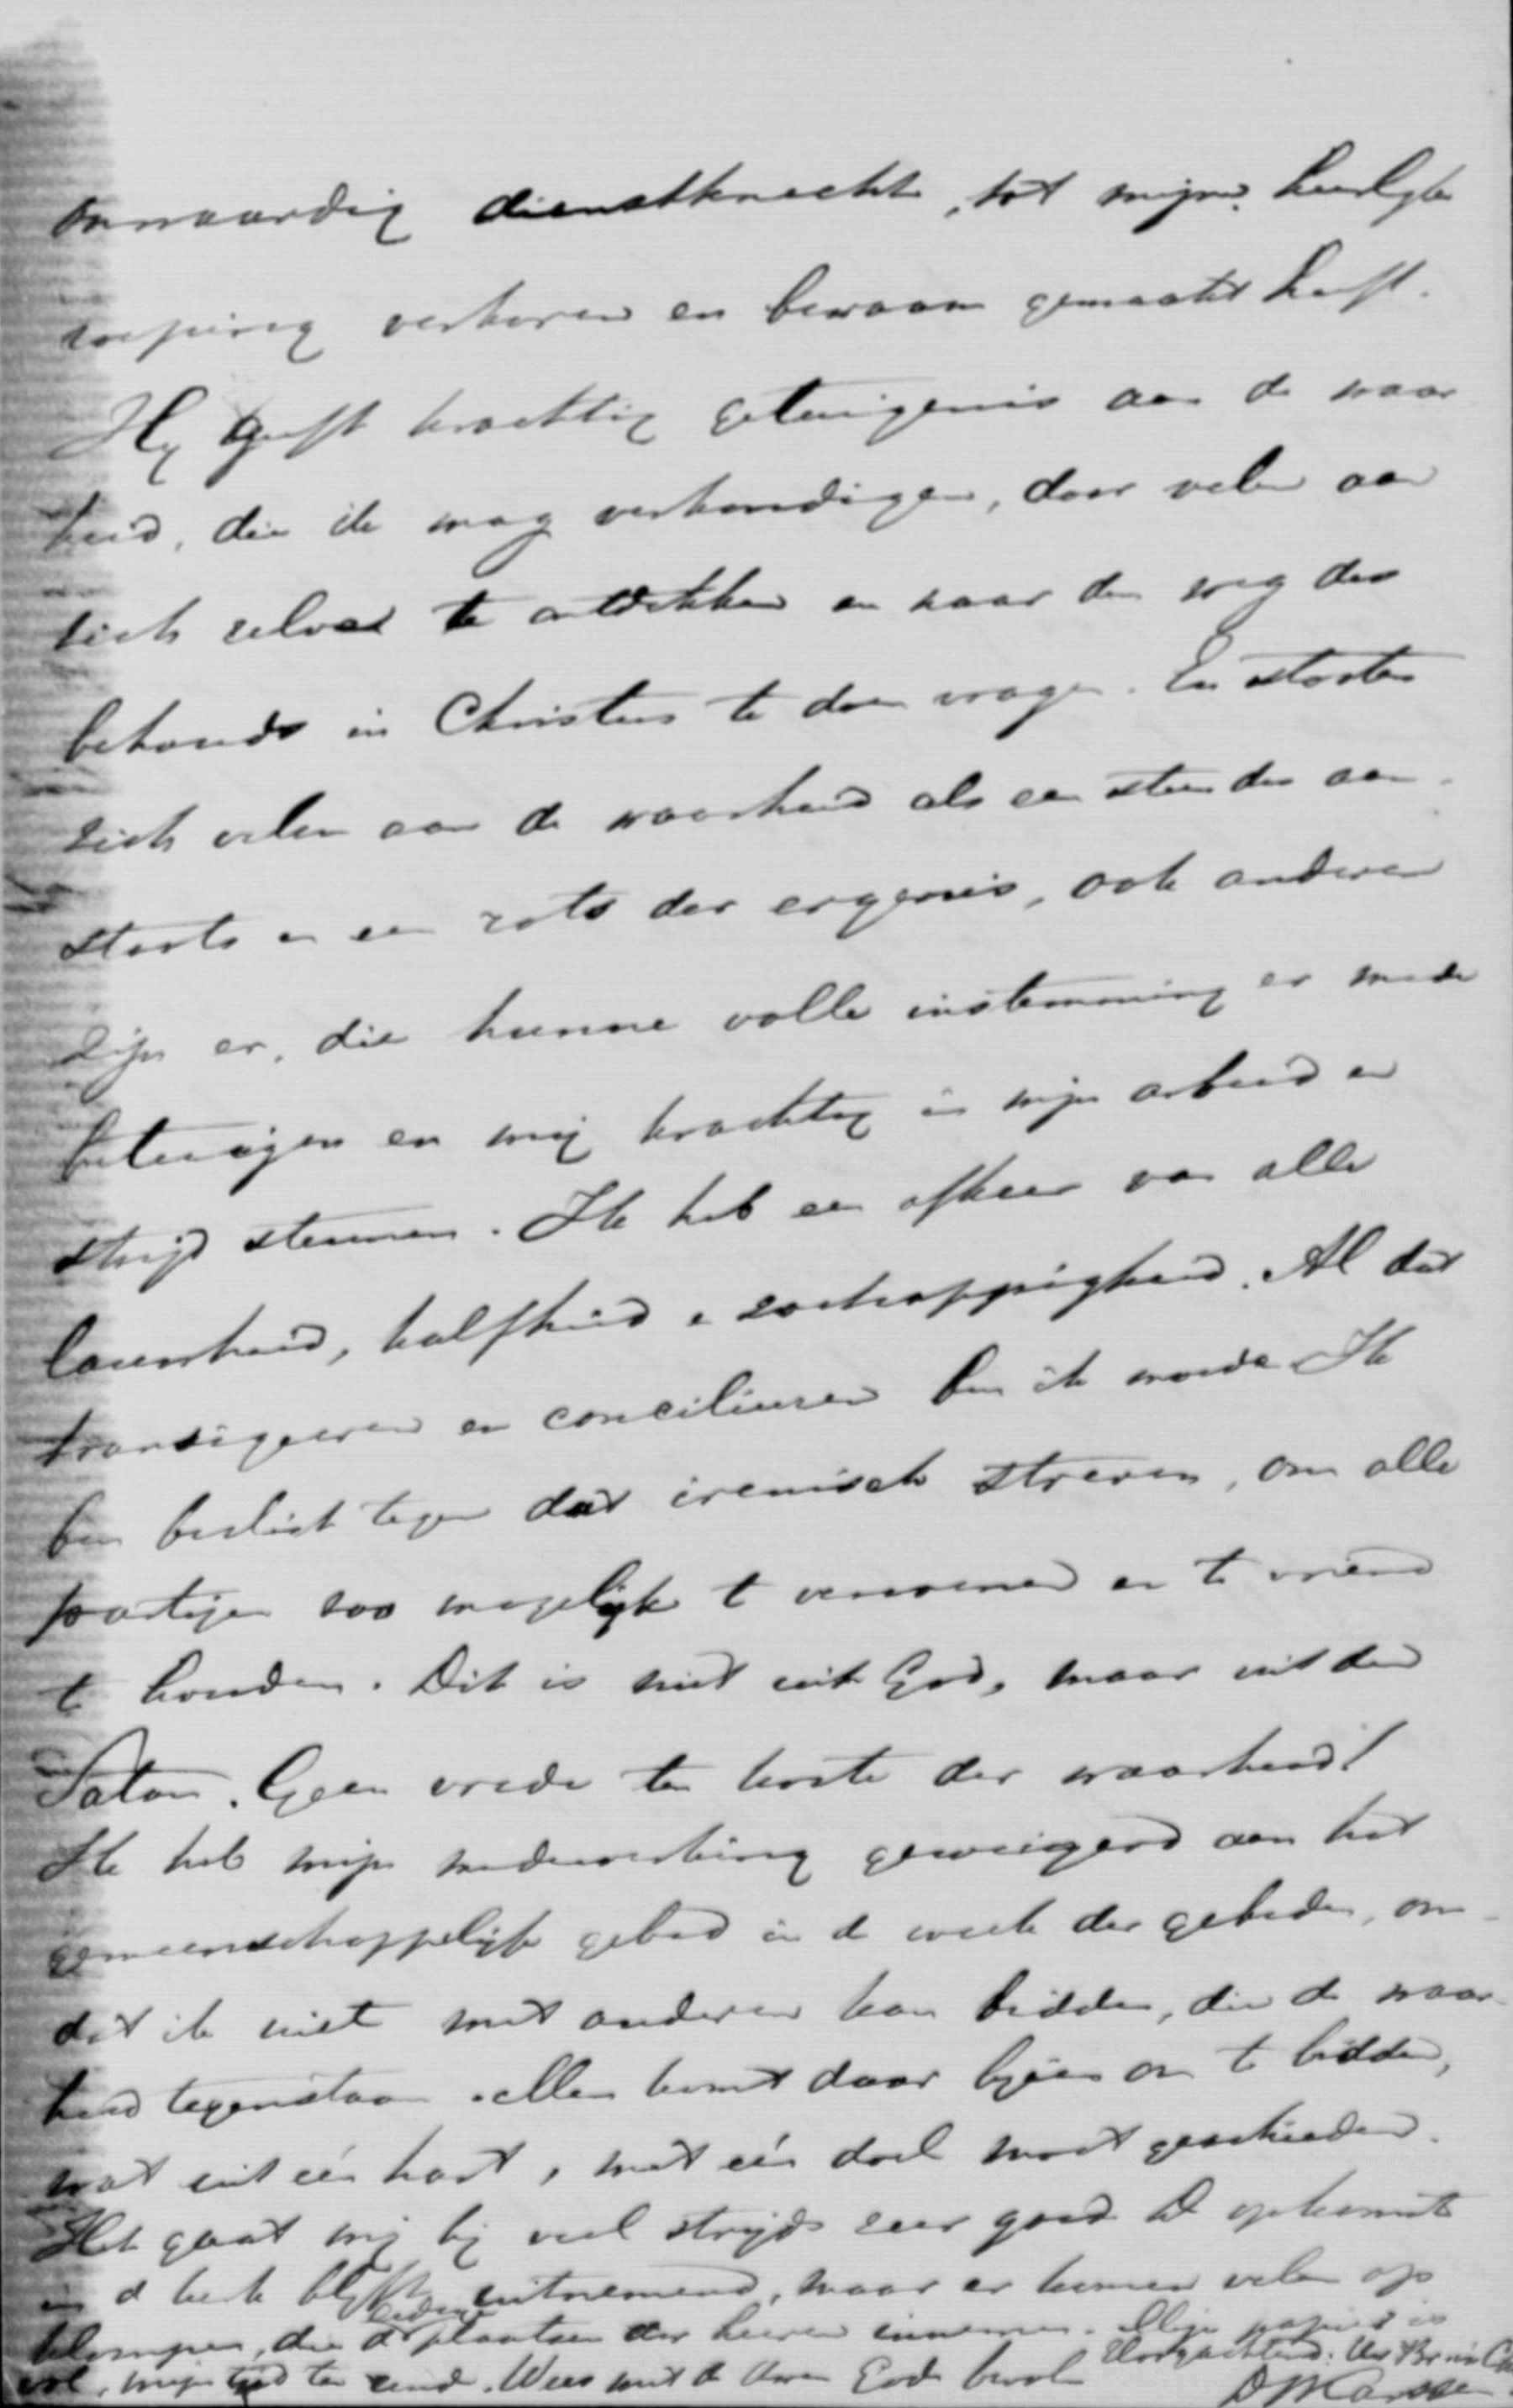 onwaardig dienstknecht, tot mijne heerlijke
roeping verkoren en bekwaam gemaakt heeft.
Hij geeft krachtig getuigenis aan de waar
heid, die ik mag verkondigen, door velen aan
zich zelven te ontdekken en naar den weg des
behouds in Christus te doen vragen. En stooten
zich velen aan de waarheid als een steen des aan-
stoots en een rots der ergernis, ook anderen
zijn er, die hunne volle instemming er mede
betuigen en mij krachtig in mijn arbeid en
strijd steunen. Ik heb een afkeer van alle
lauwheid, halfheid en zoetsappigheid. Al dat
transigeeren en conciliëeren ben ik moede. Ik
ben beslist tegen dat irenisch streven, om alle
partijen zoo mogelijk te verzoenen en te vriend
te houden. Dit is niet uit God, maar uit den
Satan. Geen vrede ten koste der waarheid!
Ik heb mijn medewerking geweigerd aan het
gemeenschappelijk gebed in de week der gebeden, om-
dat ik niet met anderen kan bidden, die de waar-
heid tegenstaan. Allen komt daar bijeen om te bidden,
wat uit één hart, met één doel moet geschieden.
Het gaat mij bij veel strijds zeer goed. De opkomst
in de kerk blijft uitnemend, maar er komen velen op
klompen, die de plaatsen der heeren innemen. Mijn papier is
vol, mijn tijd ten einde. Wees met de Uwen Gode bevolen
Hoogachtend: Uw Br in Chr